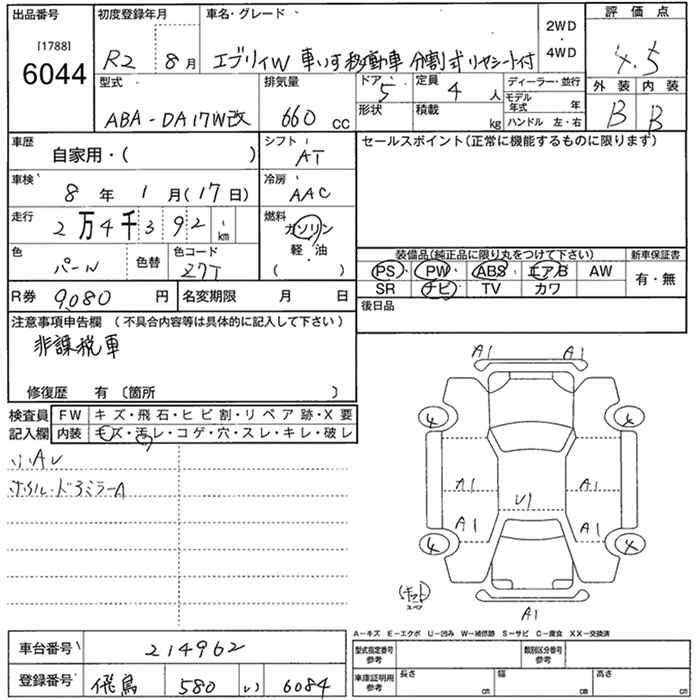 出品番号 初度登録年月 車名・グレード 2WD・4WD 評価点
[1788]
6044 R2 8月 エブリィW 車いす移動車 分割式リヤシート付 4.5
型式 排気量 ドア 5 定員 4人 ディーラー・並行 外装 内装
ABA-DA17W改 660cc 形状 積載 kg モデル年式 年 B B
ハンドル 左・右
車歴 自家用・( ) シフト AT セールスポイント(正常に機能するものに限ります)
車検 8年 1月(17日) 冷房 AAC
走行 2万4千392km 燃料 ガソリン 軽・油 ( )
色 パール 色替 色コード Z7T 装備品(純正品に限り丸をつけて下さい) 新車保証書
PS PW ABS エアB AW 有・無
SR ナビ TV カワ
R券 9,080円 名変期限 月 日 後日品
注意事項申告欄 (不具合内容等は具体的に記入して下さい)
非課税車
修復歴 有 〔箇所 〕
検査員記入欄 FW キズ・飛石・ヒビ割・リペア跡・X要
内装 キズ・汚レ・コゲ・穴・スレ・キレ・破レ
小AU
ホイル・ドアミラーA
A1 A1
4 4
A1 A1
U1
A1 A1
4 4
スペア
A1
A-キズ E-エクボ U-凹み W-補修跡 S-サビ C-腐食 XX-交換済
車台番号 214962 型式指定番号 参考 類別区分番号 参考
登録番号 飛鳥 580 い 6084 車庫証明用 参考 長さ cm 幅 cm 高さ cm